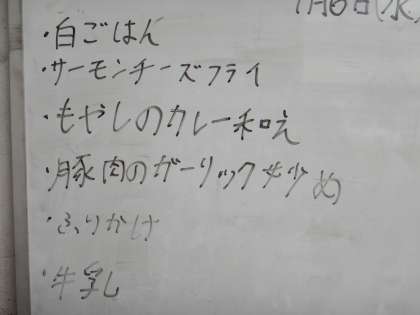 1月6日(水)
・白ごはん
・サーモンチーズフライ
・もやしのカレー和え
・豚肉のガーリック炒め
・ふりかけ
・牛乳